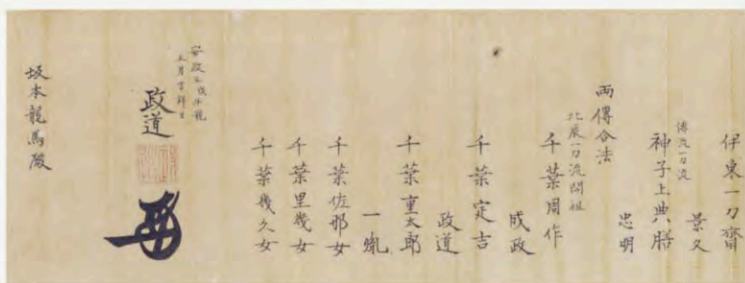 伊東一刀齋
景久
一刀流
神子上典膳
忠明
兩傳合法
北辰一刀流開祖
千葉周作
成政
千葉定吉
政道
千葉重太郎
一胤
千葉佐那女
千葉里幾女
千葉幾久女
安政五戊午龍
月吉祥日
政道
坂本龍馬殿